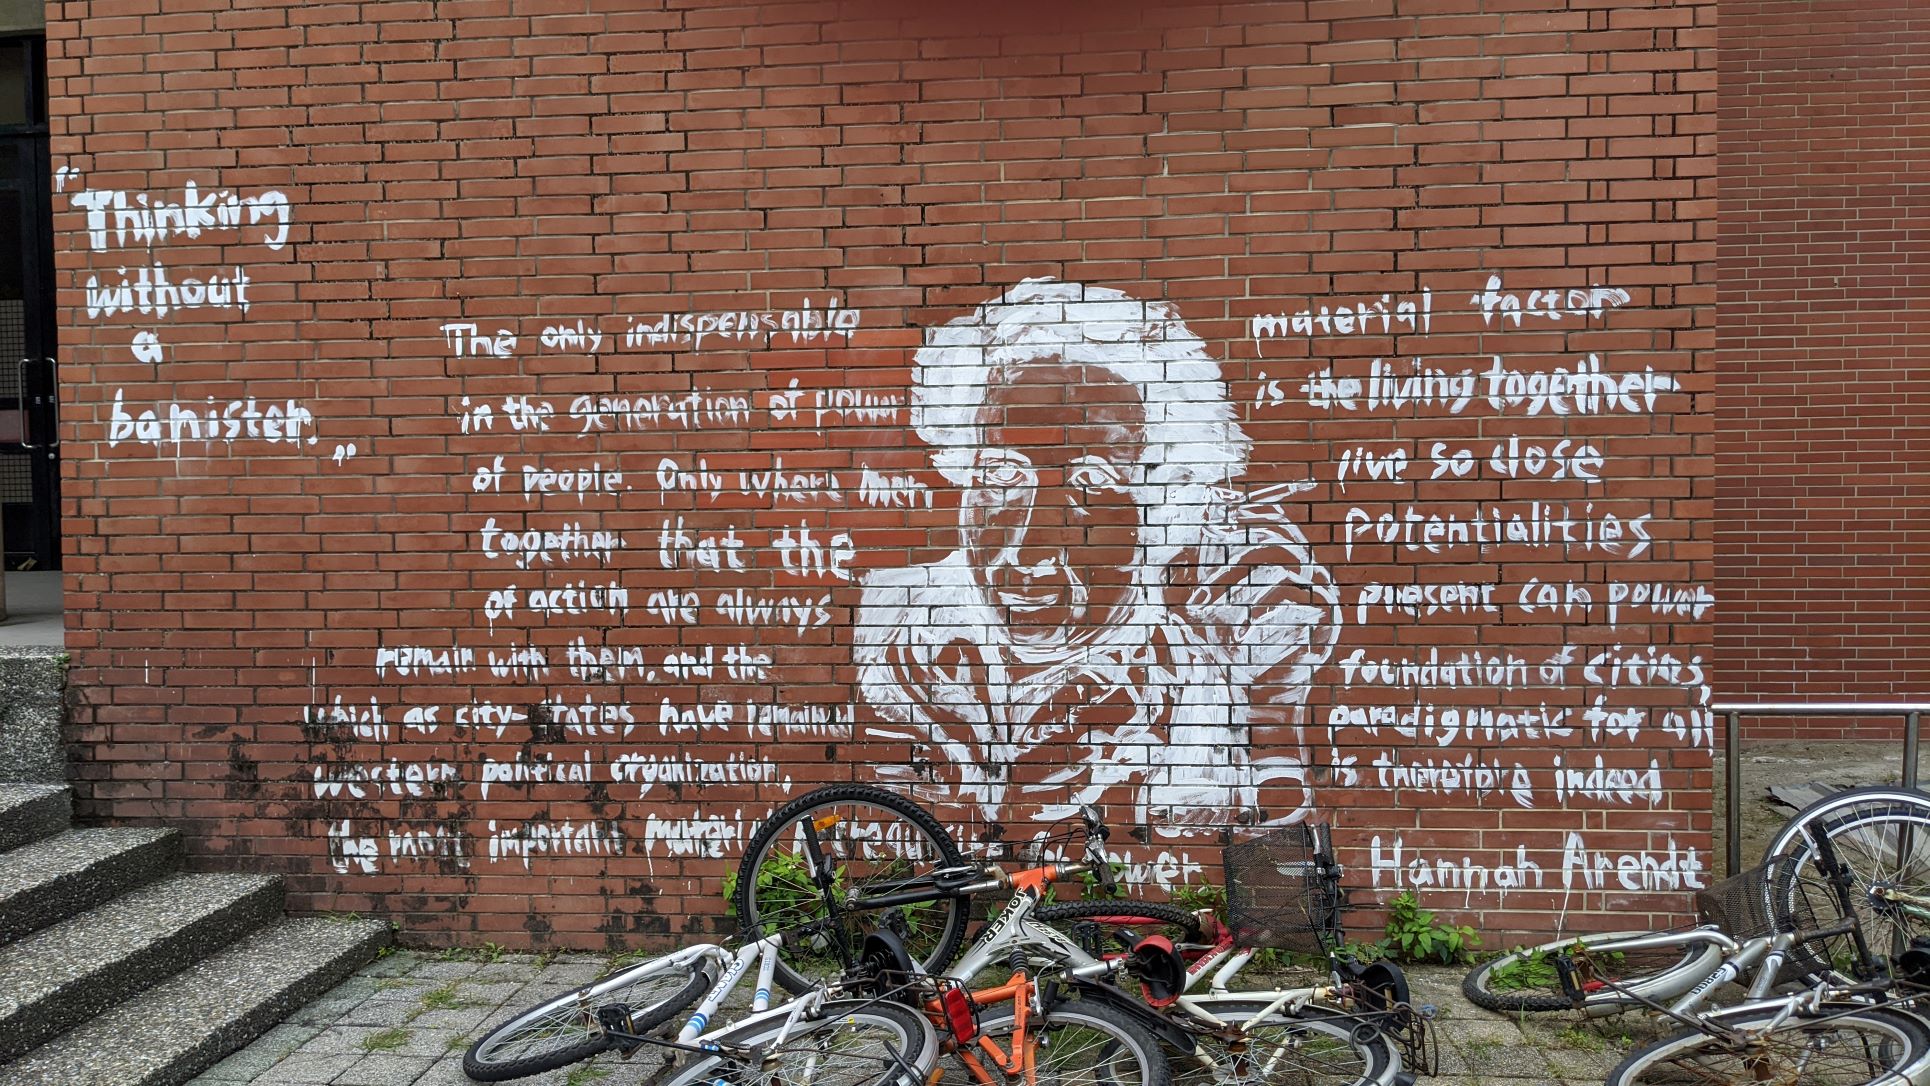 "Thinking
without
a
banister."
The only indispensable material factor
in the generation of power is the living together
of people. Only where men live so close
together that the potentialities
of action are always present can power
remain with them, and the foundation of cities,
which as city-states have remained paradigmatic for all
western political organization, is therefore indeed
the most important material prerequisite of power.
Hannah Arendt
JOKER
GIANT